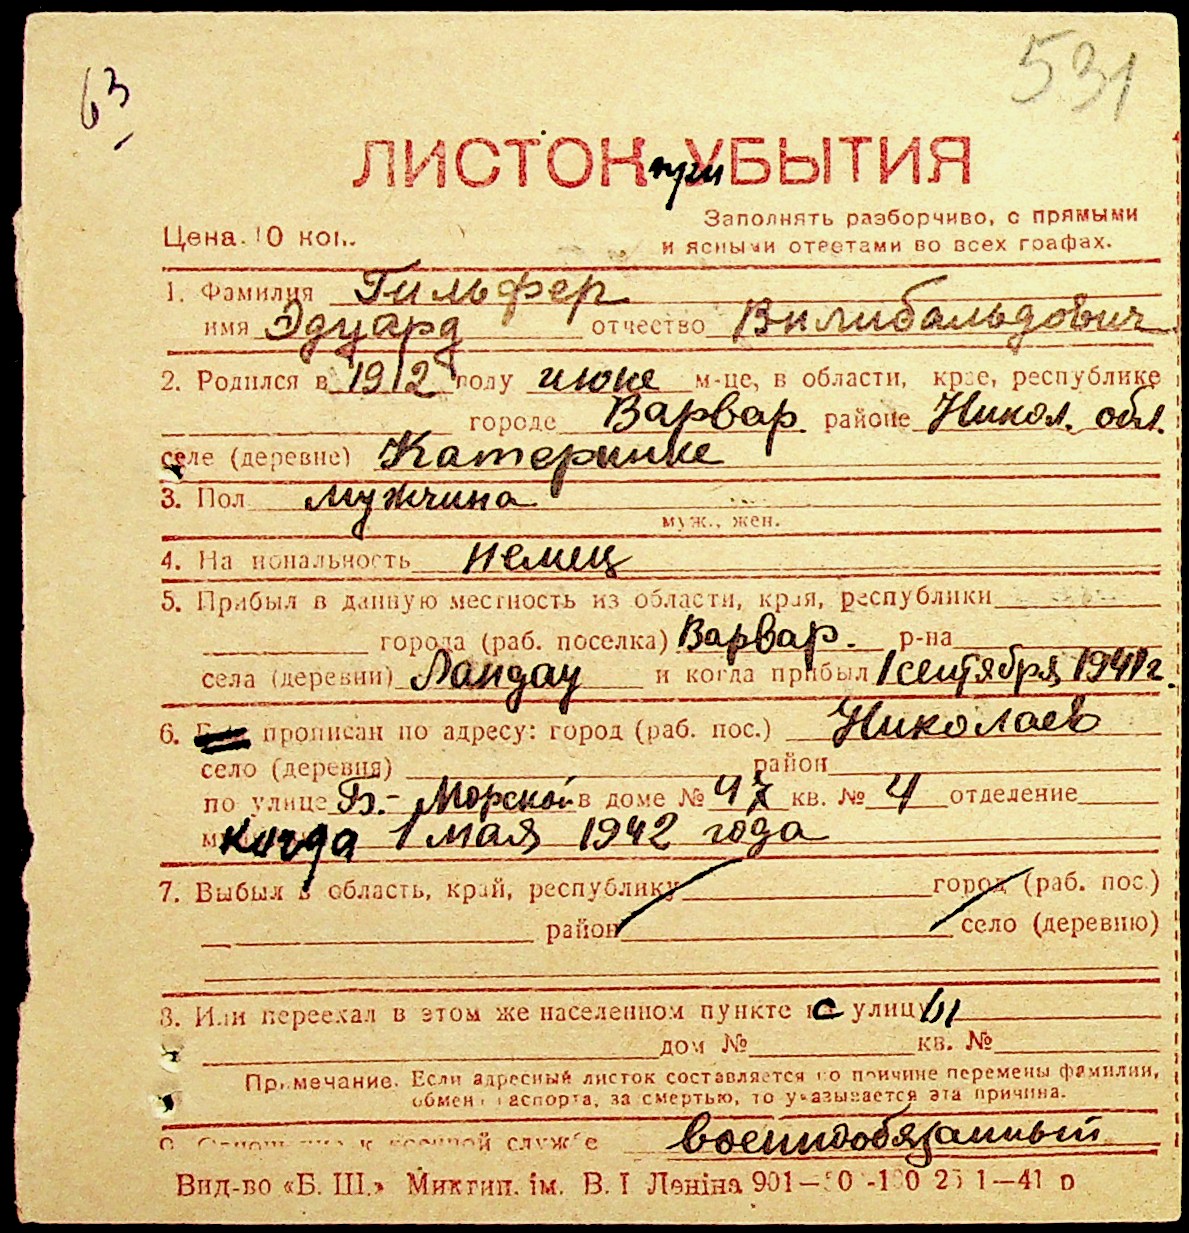 63
531
ЛИСТОК при УБЫТИЯ
Цена 10 коп.
Заполнять разборчиво, с прямыми
и ясными ответами во всех графах.
1. Фамилия Гильфер
имя Эдуард отчество Вилибальдович
2. Родился в 1912 году июне м-це, в области, крае, республике
городе Варвар. районе Никол. обл.
селе (деревне) Катеринке
3. Пол мужчина
муж., жен.
4. Национальность немец
5. Прибыл в данную местность из области, края, республики
города (раб. поселка) Варвар. р-на
села (деревни) Ландау и когда прибыл 1 сентября 1941 г.
6. прописан по адресу: город (раб. пос.) Николаев
село (деревня) район
по улице Б.-Морской в доме № кв. № 4 отделение
когда 1 мая 1942 года
7. Выбыл в область, край, республику город (раб. пос.)
район село (деревню)
8. Или переехал в этом же населенном пункте с улицы
дом № кв. №
Примечание. Если адресный листок составляется по причине перемены фамилии,
обмена паспорта, за смертью, то указывается эта причина.
9. Отношение к военной службе военнообязанный
Вид-во «Б. Ш.» Миктип. ім. В. І Леніна